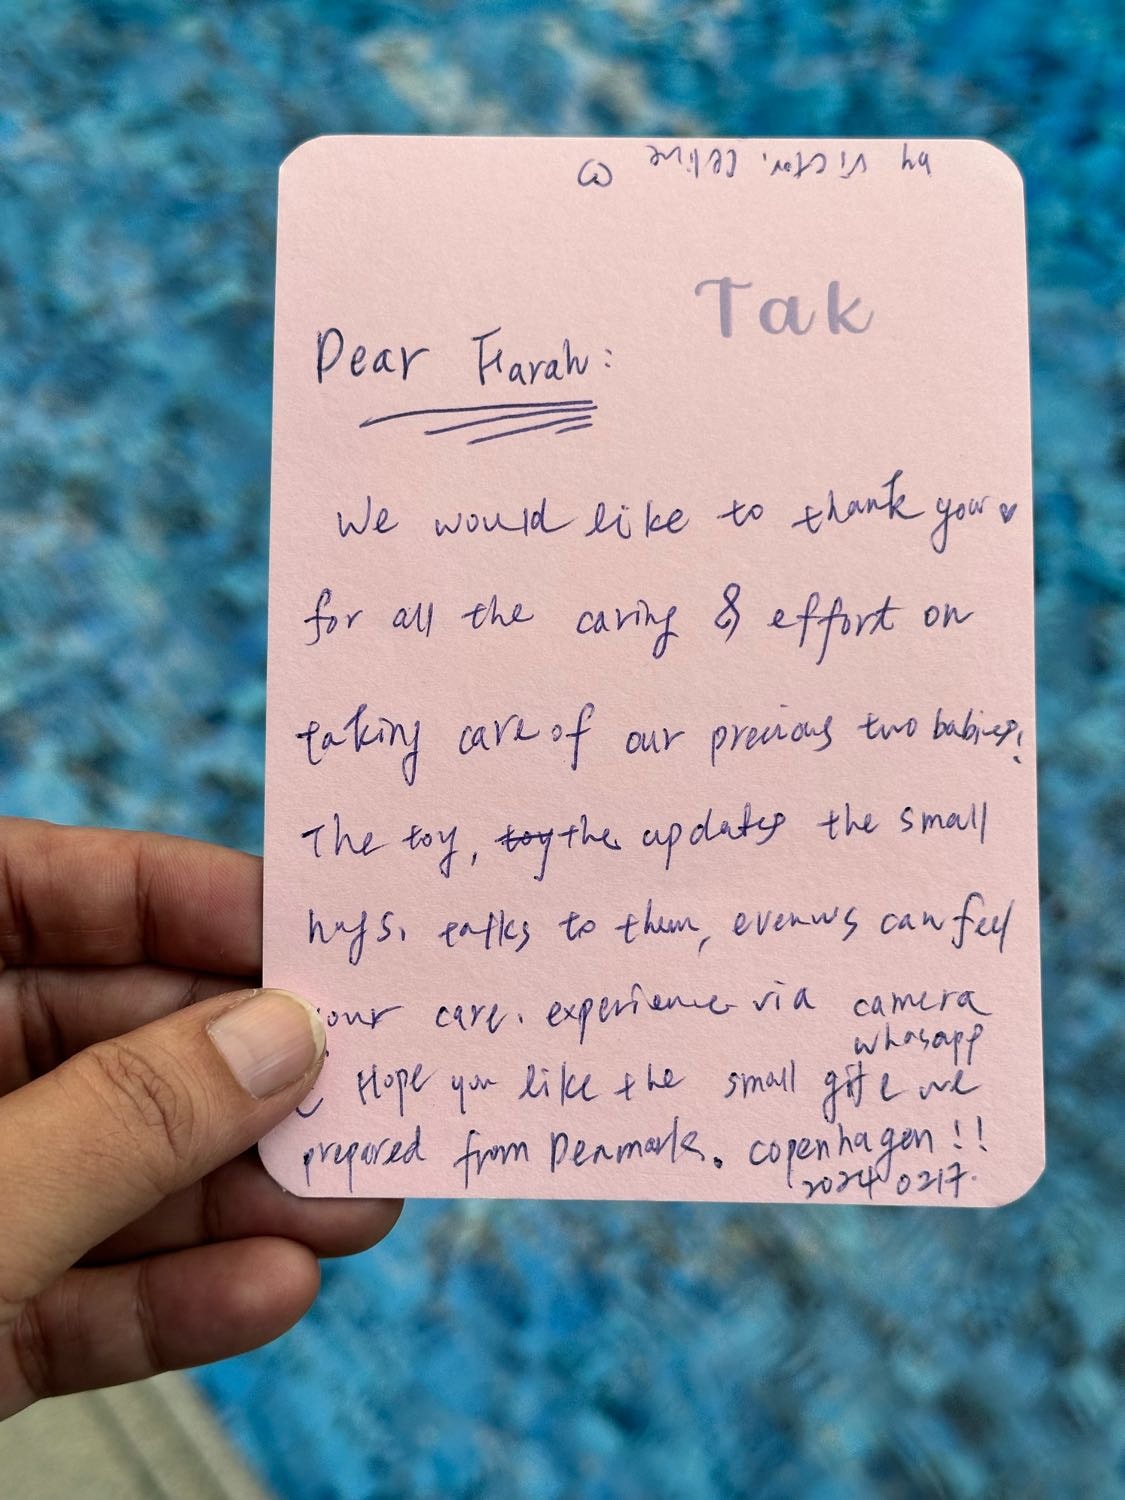 by Victor. Celine
Tak
Dear Farah:
We would like to thank you ♥
for all the caring & effort on
taking care of our precious two babies!
The toy, toy the updates the small
hugs. talks to them, even us can feel
your care. experience via camera
whasapp
Hope you like the small gift we
prepared from Denmark. copenhagen!!
2024 0217.